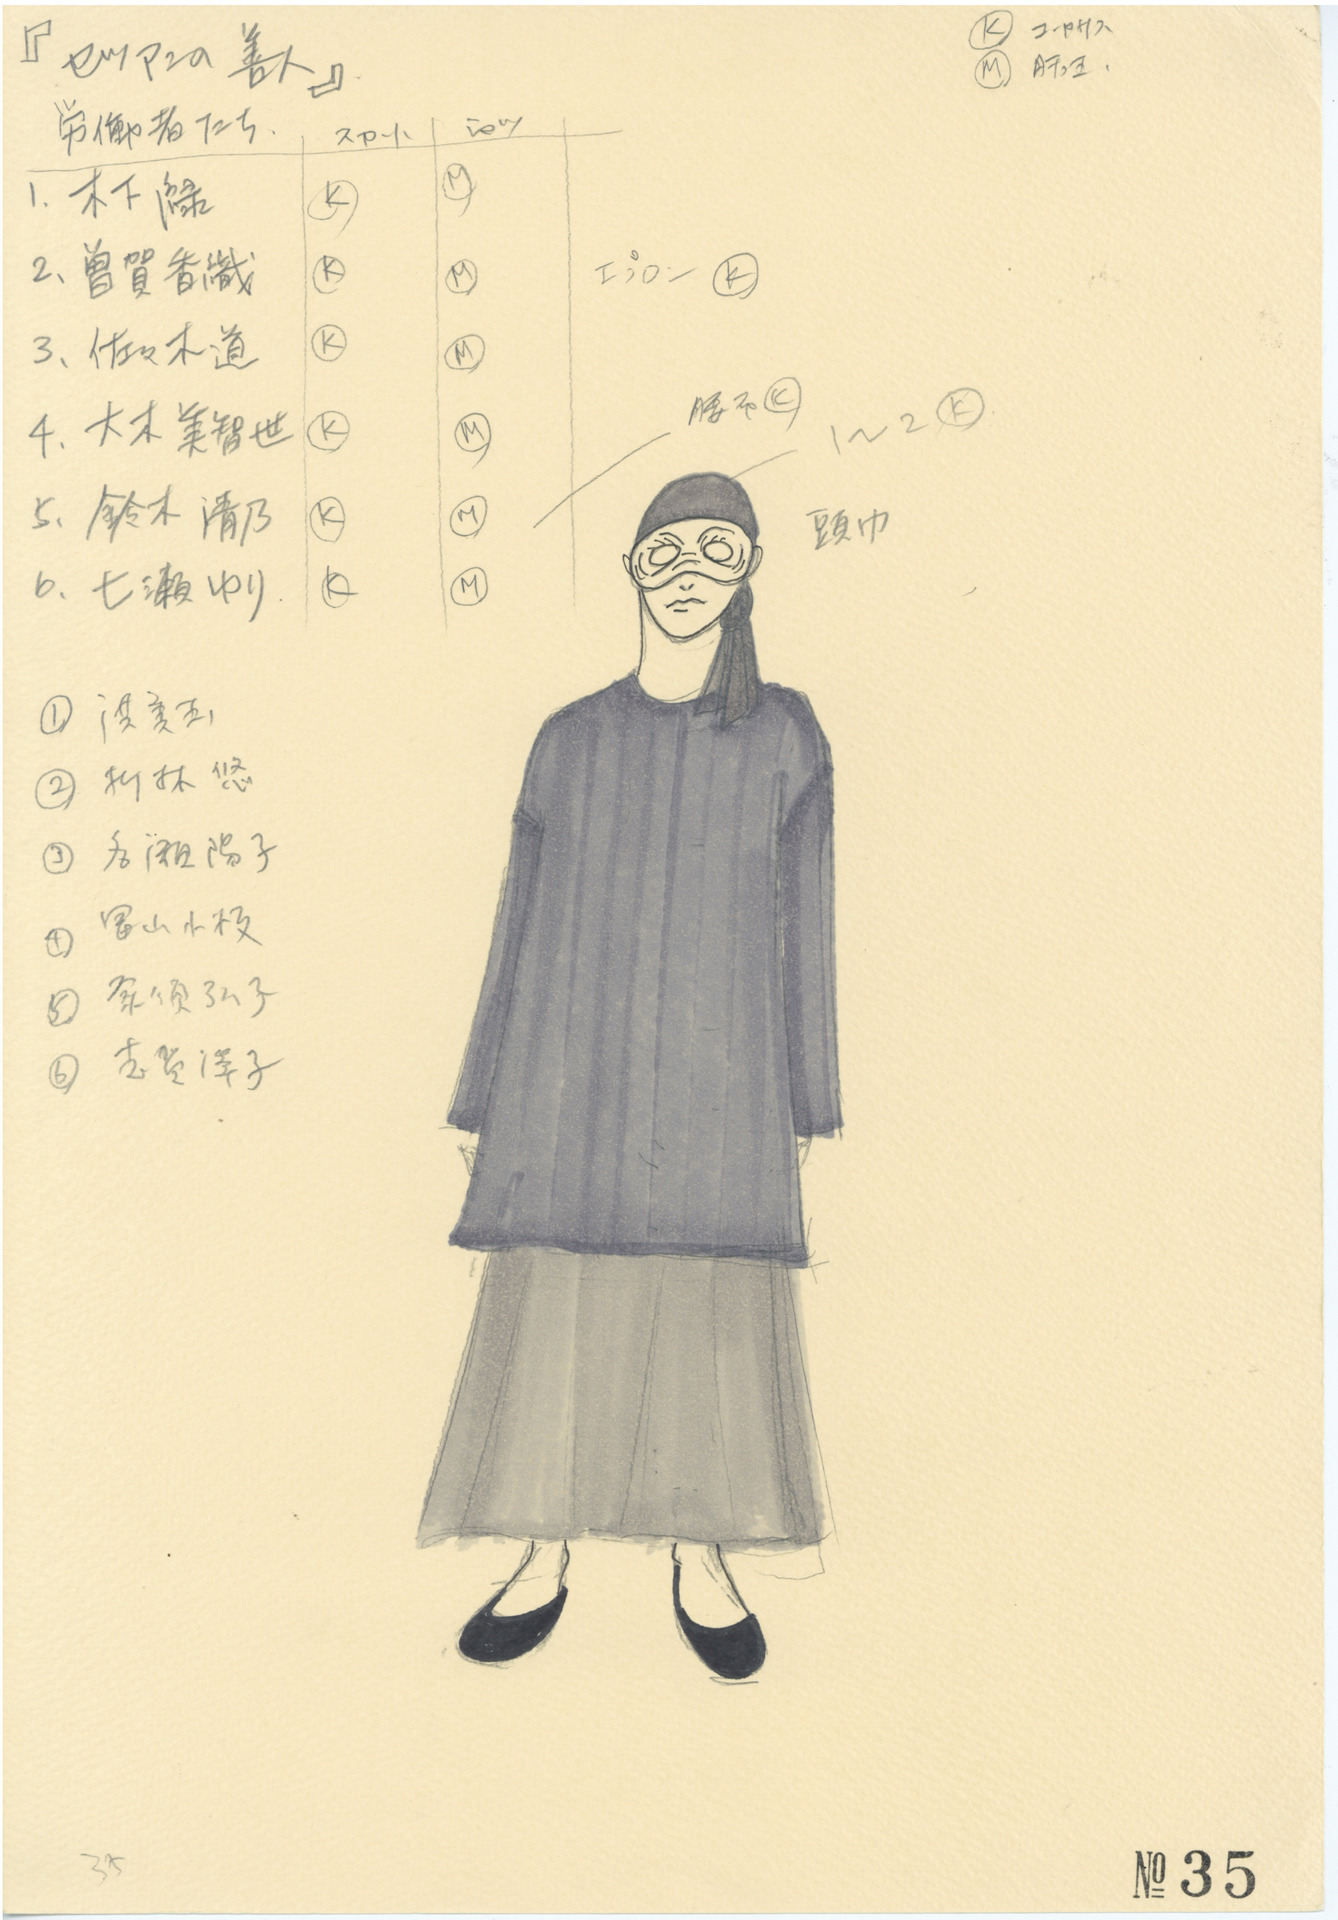 『セツアンの善人』
Ⓚ コーカサス
Ⓜ
労働者たち. スカート シャツ
1. 木下 緑 Ⓚ Ⓜ
2、曽賀香織 Ⓚ Ⓜ エプロン Ⓚ
3、佐々木道 Ⓚ Ⓜ
4、大木美智世 Ⓚ Ⓜ
5、鈴木清乃 Ⓚ Ⓜ
6、七瀬ゆり. Ⓚ Ⓜ
腰布 Ⓚ
1〜2 Ⓚ
頭巾
①
② 悠
③ 名瀬陽子
④ 冨山小枝
⑤ 奈須弘子
⑥ 志賀澤子
35
№35